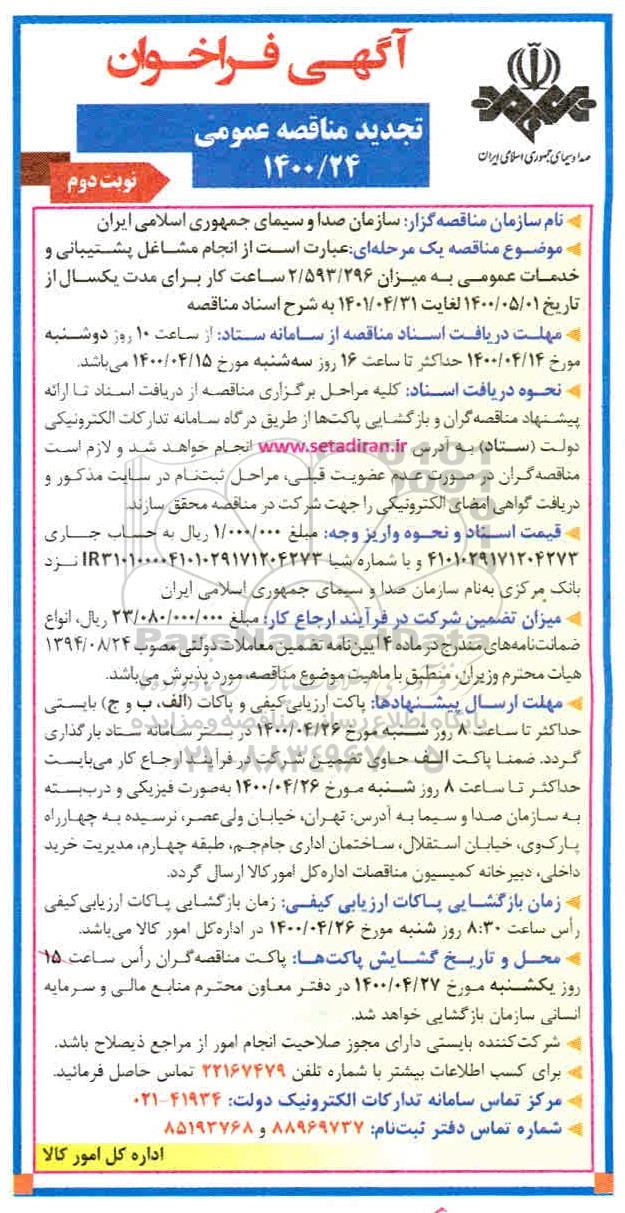 آگهی فراخوان
صدا و سیمای جمهوری اسلامی ایران
تجدید مناقصه عمومی
۱۴۰۰/۲۴
نوبت دوم
نام سازمان مناقصه‌گزار: سازمان صدا و سیمای جمهوری اسلامی ایران
موضوع مناقصه یک مرحله‌ای: عبارت است از انجام مشاغل پشتیبانی و
خدمات عمومی به میزان ۲/۵۹۳/۲۹۶ ساعت کار برای مدت یکسال از
تاریخ ۱۴۰۰/۰۵/۰۱ لغایت ۱۴۰۱/۰۴/۳۱ به شرح اسناد مناقصه
مهلت دریافت اسناد مناقصه از سامانه ستاد: از ساعت ۱۰ روز دوشنبه
مورخ ۱۴۰۰/۰۴/۱۴ حداکثر تا ساعت ۱۶ روز سه‌شنبه مورخ ۱۴۰۰/۰۴/۱۵ می‌باشد.
نحوه دریافت اسناد: کلیه مراحل برگزاری مناقصه از دریافت اسناد تا ارائه
پیشنهاد مناقصه‌گران و بازگشایی پاکت‌ها از طریق درگاه سامانه تدارکات الکترونیکی
دولت (ستاد) به آدرس www.setadiran.ir انجام خواهد شد و لازم است
مناقصه‌گران در صورت عدم عضویت قبلی، مراحل ثبت‌نام در سایت مذکور و
دریافت گواهی امضای الکترونیکی را جهت شرکت در مناقصه محقق سازند.
قیمت اسناد و نحوه واریز وجه: مبلغ ۱/۰۰۰/۰۰۰ ریال به حساب جاری
۴۱۰۱۰۲۹۱۷۱۲۰۴۲۷۳ و با شماره شبا IR۳۱۰۱۰۰۰۰۴۱۰۱۰۲۹۱۷۱۲۰۴۲۷۳ نزد
بانک مرکزی به‌نام سازمان صدا و سیمای جمهوری اسلامی ایران
میزان تضمین شرکت در فرآیند ارجاع کار: مبلغ ۲۳/۰۸۰/۰۰۰/۰۰۰ ریال، انواع
ضمانت‌نامه‌های مندرج در ماده ۴ آیین‌نامه تضمین معاملات دولتی مصوب ۱۳۹۴/۰۸/۲۴
هیات محترم وزیران، منطبق با ماهیت موضوع مناقصه، مورد پذیرش می‌باشد.
مهلت ارسال پیشنهادها: پاکت ارزیابی کیفی و پاکات (الف، ب و ج) بایستی
حداکثر تا ساعت ۸ روز شنبه مورخ ۱۴۰۰/۰۴/۲۶ در بستر سامانه ستاد بارگذاری
گردد. ضمنا پاکت الف حاوی تضمین شرکت در فرآیند ارجاع کار می‌بایست
حداکثر تا ساعت ۸ روز شنبه مورخ ۱۴۰۰/۰۴/۲۶ به‌صورت فیزیکی و درب‌بسته
به سازمان صدا و سیما به آدرس: تهران، خیابان ولی‌عصر، نرسیده به چهارراه
پارک‌وی، خیابان استقلال، ساختمان اداری جام‌جم، طبقه چهارم، مدیریت خرید
داخلی، دبیرخانه کمیسیون مناقصات اداره‌کل امور کالا ارسال گردد.
زمان بازگشایی پاکات ارزیابی کیفی: زمان بازگشایی پاکات ارزیابی کیفی
رأس ساعت ۸:۳۰ روز شنبه مورخ ۱۴۰۰/۰۴/۲۶ در اداره‌کل امور کالا می‌باشد.
محل و تاریخ گشایش پاکت‌ها: پاکت مناقصه‌گران رأس ساعت ۱۵
روز یکشنبه مورخ ۱۴۰۰/۰۴/۲۷ در دفتر معاون محترم منابع مالی و سرمایه
انسانی سازمان بازگشایی خواهد شد.
شرکت‌کننده بایستی دارای مجوز صلاحیت انجام امور از مراجع ذیصلاح باشد.
برای کسب اطلاعات بیشتر با شماره تلفن ۲۲۱۶۷۴۷۹ تماس حاصل فرمائید.
مرکز تماس سامانه تدارکات الکترونیک دولت: ۴۱۹۳۴-۰۲۱
شماره تماس دفتر ثبت‌نام: ۸۸۹۶۹۷۳۷ و ۸۵۱۹۳۷۶۸
اداره کل امور کالا
ParsNamadData
پایگاه اطلاع رسانی مناقصه و مزایده
۰۲۱-۸۸۳۴۹۶۷۰-۵